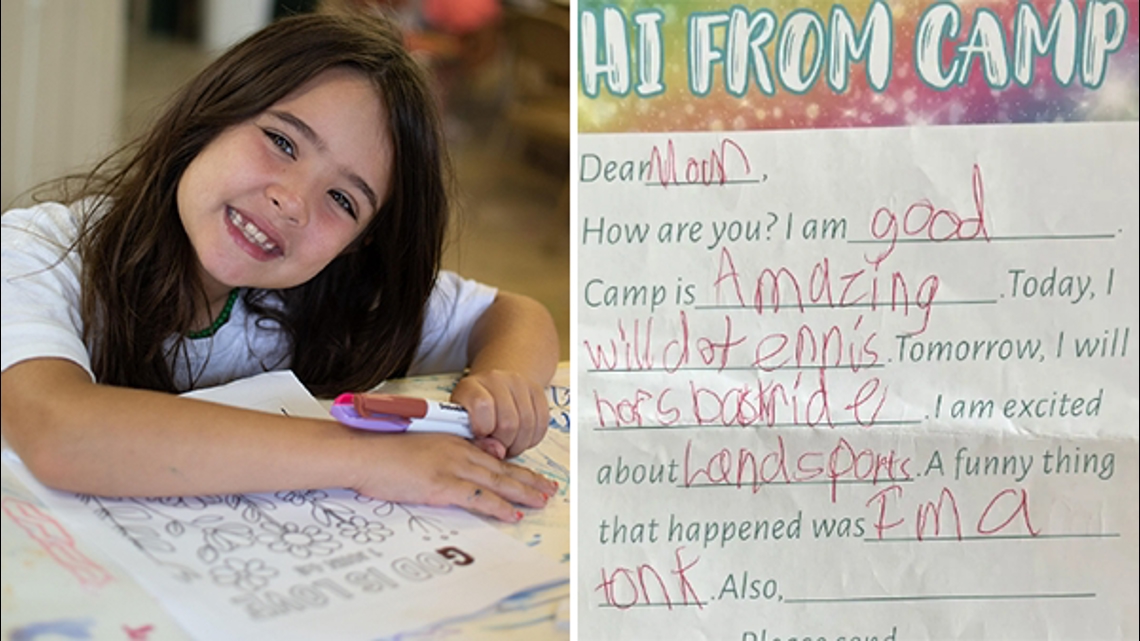 GOD IS LOVE
HI FROM CAMP
Dear Mom,
How are you? I am good.
Camp is Amazing. Today, I
will do tennis. Tomorrow, I will
hors bastride. I am excited
about Landsports. A funny thing
that happened was I'm a
tonk. Also,
Please send